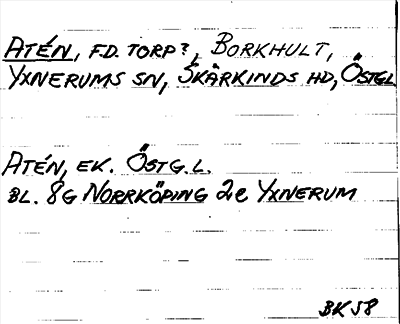 ATÉN, F.D. TORP?, BORKHULT,
YXNERUMS SN, SKÄRKINDS HD, ÖSTGL
ATÉN, EK. ÖSTG.L.
BL. 8G NORRKÖPING 2e YXNERUM
BK 58